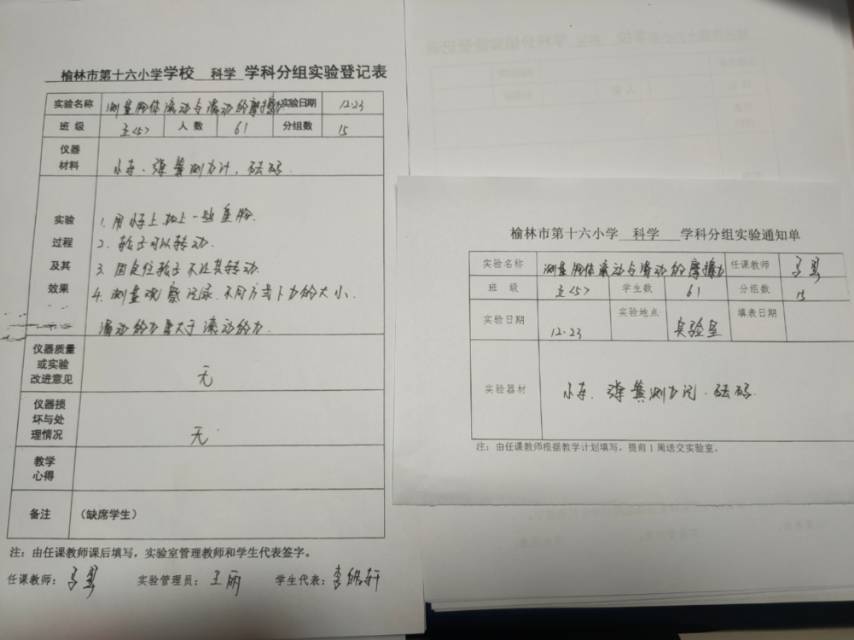 榆林市第十六小学学校 科学 学科分组实验登记表
实验名称 测量物体滚动与滑动的摩擦力 实验日期 12.23
班 级 五<5> 人 数 61 分组数 15
仪器材料 小车、弹簧测力计、砝码
实验过程及其效果
1. 用小车上加上一些重物.
2. 轮子可以转动.
3. 固定住轮子不让其转动.
4. 测量观察记录不同方式下力的大小.
滑动的力要大于滚动的力.
仪器质量或实验改进意见 无
仪器损坏与处理情况 无
教学心得
备注 (缺席学生)
注:由任课教师课后填写,实验室管理教师和学生代表签字。
任课教师: 实验管理员: 王丽 学生代表: 李
榆林市第十六小学 科学 学科分组实验通知单
实验名称 测量物体滚动与滑动的摩擦力 任课教师
班 级 五<5> 学生数 61 分组数 15
实验日期 12.23 实验地点 实验室 填表日期
实验器材 小车、弹簧测力计、砝码
注:由任课教师根据教学计划填写,提前1周送交实验室。